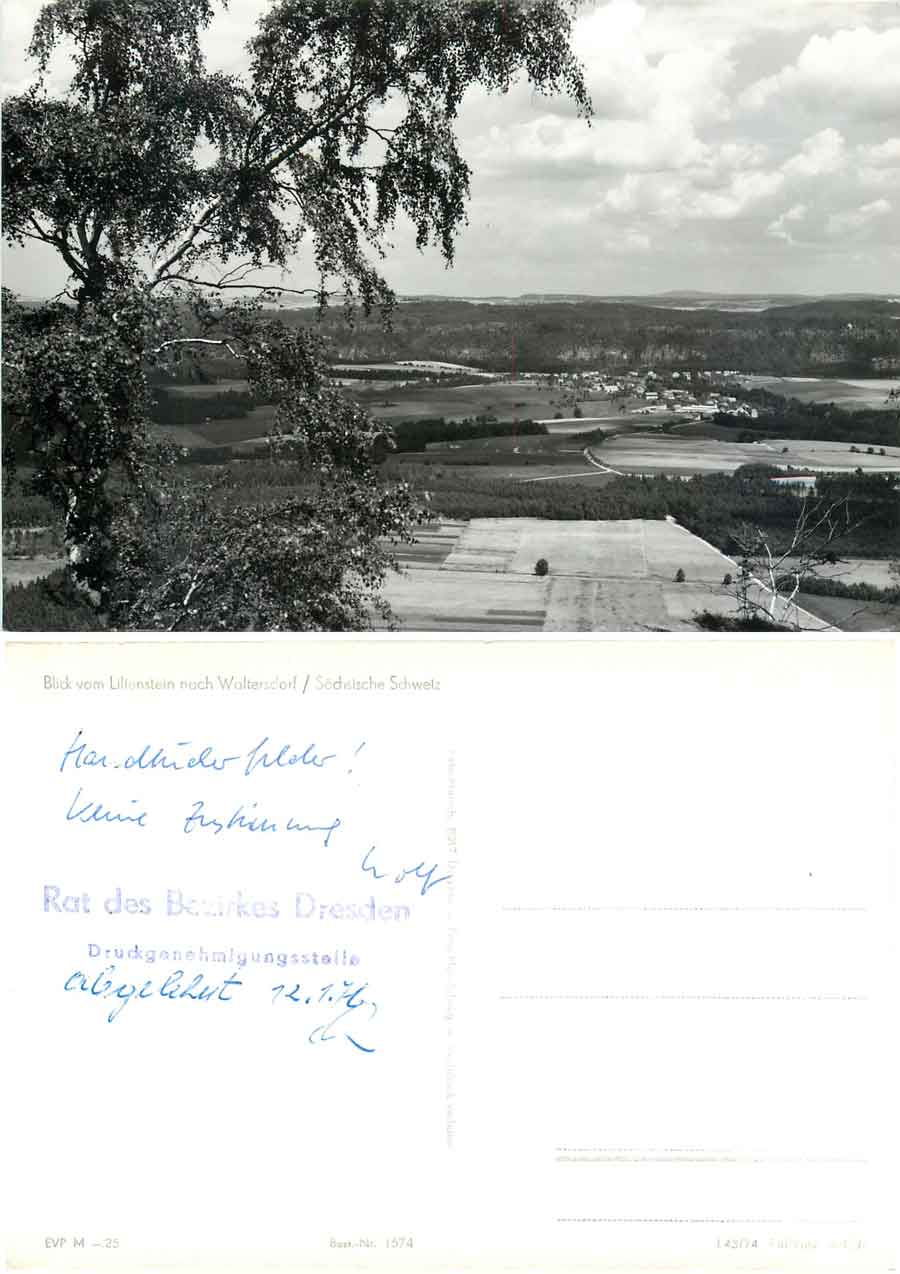 Blick vom Lilienstein nach Waltersdorf / Sächsische Schweiz
Handtücherfelder!
Keine Zustimmung
Wolf
Rat des Bezirkes Dresden
Druckgenehmigungsstelle
abgelehnt 12.1.76
EVP M –.25
Best.-Nr. 1574